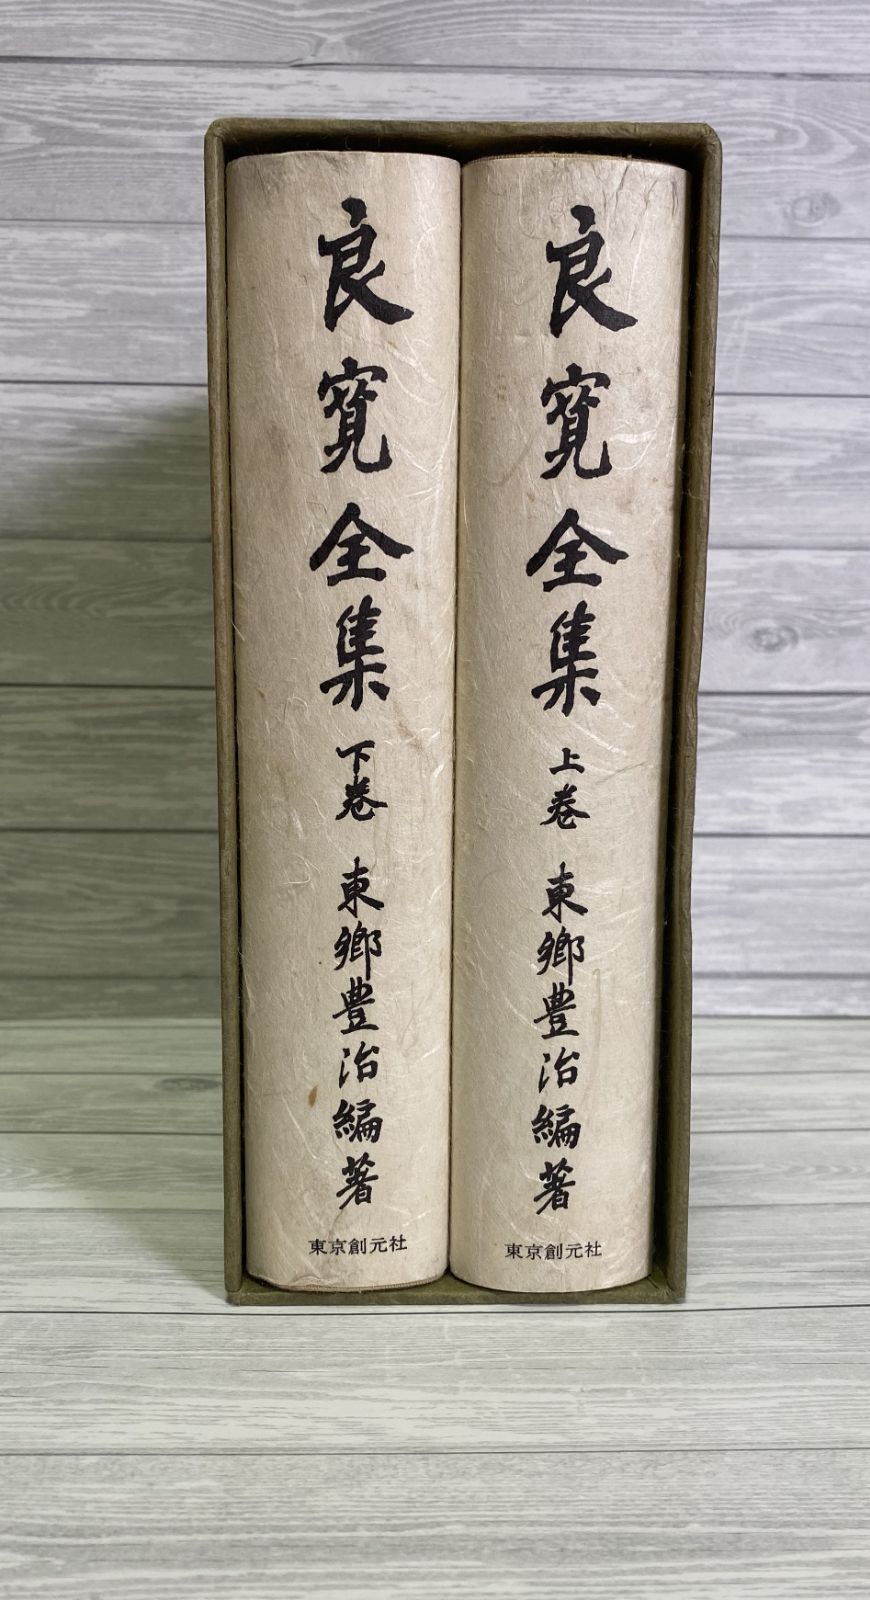 良寛全集 上巻 東郷豊治編著
東京創元社
良寛全集 下巻 東郷豊治編著
東京創元社